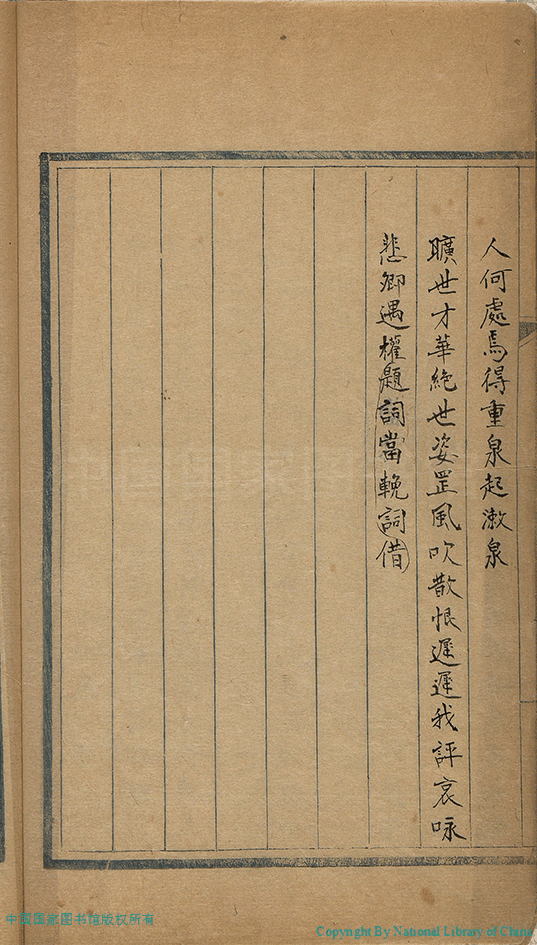 人何處焉得重泉起漱泉
曠世才華絶世姿罡風吹散恨遲遲我評哀咏
悲卿遇權題詞當輓詞借
中国国家图书馆版权所有
Copyright By National Library of China